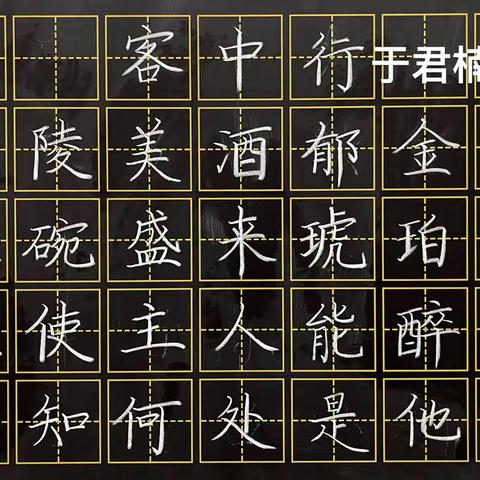 客中行 于君楠
陵美酒郁金
碗盛来琥珀
使主人能醉
知何处是他